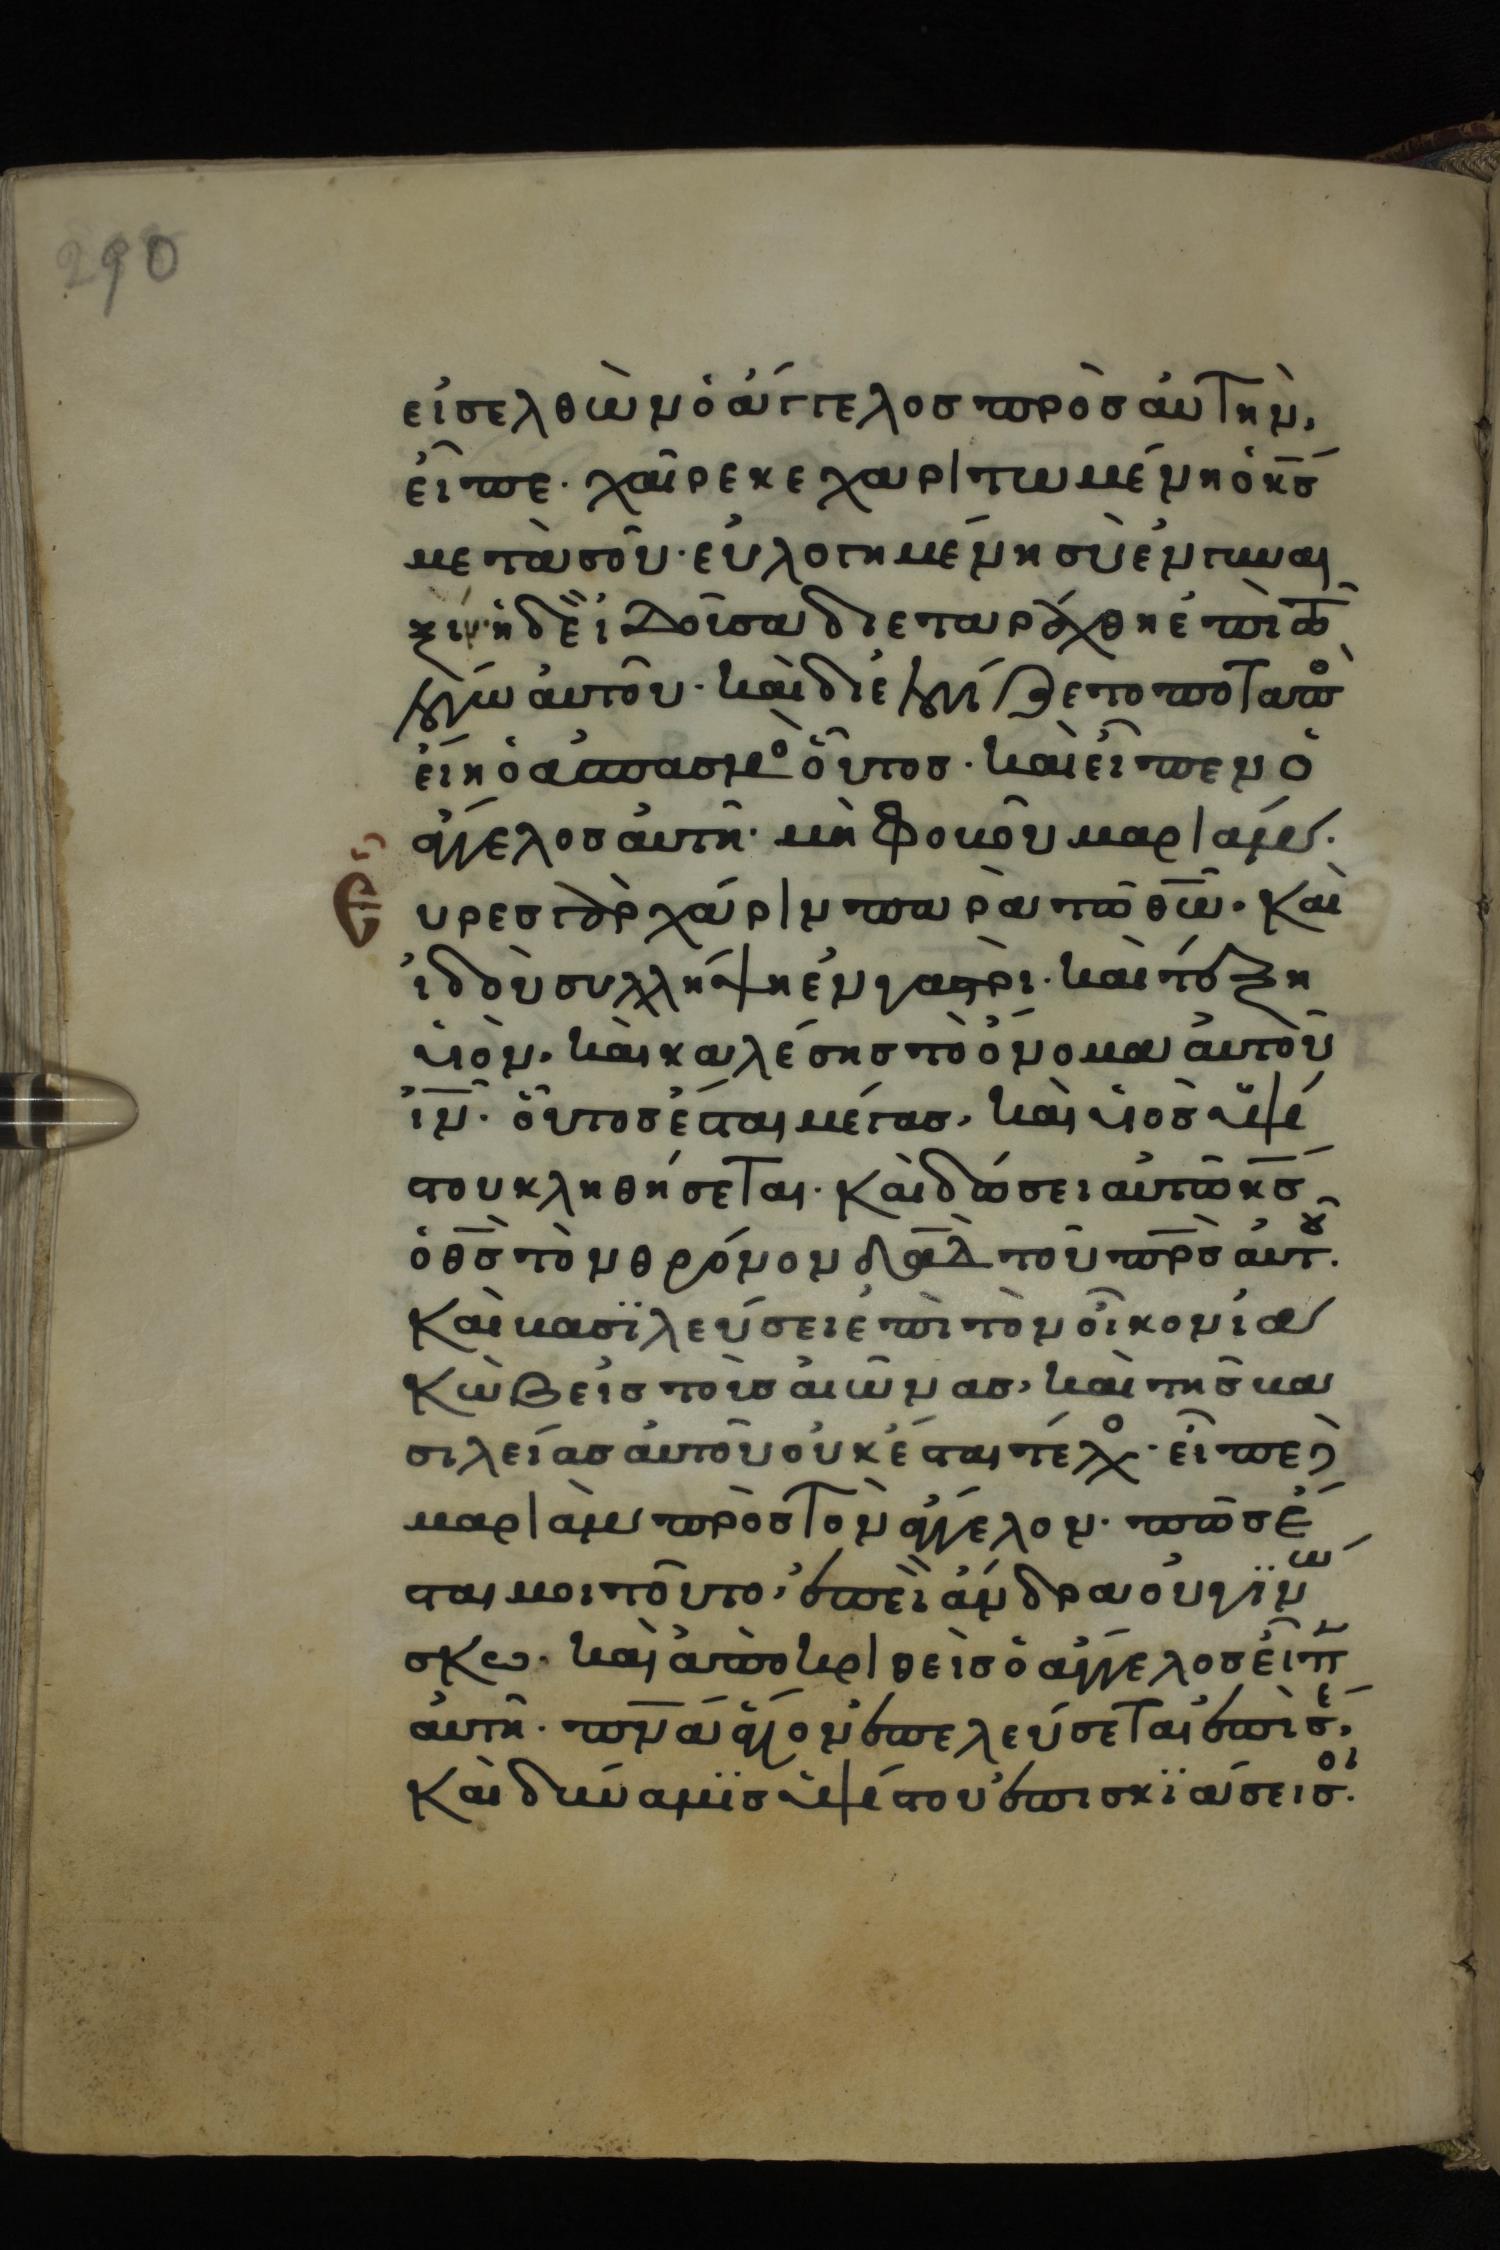 290
εἰσελθὼν ὁ ἄγγελος πρὸς αὐτὴν,
εἶπε· χαῖρε κεχαριτωμένη ὁ κ̅ς
μετὰ σοῦ· εὐλογημένη σὺ ἐν γυναι
ξιν· ἡ δὲ ἰδοῦσα διεταράχθη ἐπὶ τῶ
λόγω αὐτοῦ· καὶ διελογίζετο ποταπὸς
εἴη ὁ ἀσπασμὸς οὗτος· καὶ εἶπεν ὁ
ἄγγελος αὐτῆ· μὴ φοβοῦ μαριάμ·
Εὗρες γὰρ χάριν παρὰ τῶ θ̅ω· Καὶ
ἰδοὺ συλλήψη ἐν γαστρὶ· καὶ τέξη
υἱὸν· καὶ καλέσης τὸ ὄνομα αὐτοῦ
ι̅ν· οὗτος ἔσται μέγας, καὶ υἱὸς ὑψί
στου κληθήσεται· Καὶ δώσει αὐτῶ κ̅ς
ὁ θ̅ς τὸν θρόνον δα̅δ τοῦ π̅ρς αὐτοῦ·
Καὶ βασϊλεύσει ἐπὶ τὸν οἶκον ἰα
κὼβ εἰς τοὺς αἰῶνας, καὶ τῆς βα
σιλείας αὐτοῦ οὐκ ἔσται τέλος· εἶπε δὲ
μαριὰμ πρὸς τὸν ἄγγελον· πῶς ἔ
σται μοι τοῦτο, ἐπεὶ ἄνδρα οὐ γϊνώ
σκω· καὶ ἀποκριθεὶς ὁ ἄγγελος εἶπεν
αὐτῆ· π̅να ἅγιον ἐπελεύσεται ἐπὶ σέ,
Καὶ δύναμϊς ὑψίστου ἐπισκϊάσει σοι·